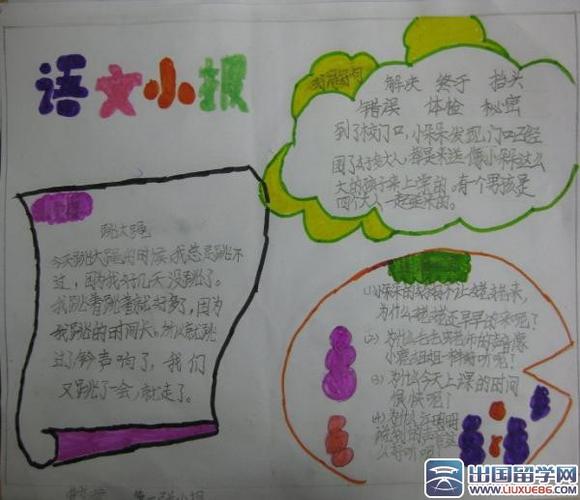 语文小报
解决 终于 抬头
错误 体检 秘密
到了校门口,小呆呆发现,门口已经
围了好些大人,都是来送像小呆这么
大的孩子来上课的。有一个男孩是
四个大人一起送来的。
跳大绳
今天跳大绳的时候,我总是跳不
过,因为我好几天没跳了。
我跳着跳着就好了,因为
我跳的时间长,所以就跳
过了。铃声响了,我们
又跳了一会,就走了。
为什么姥姥还早早的来呢?
(2)为什么毛毛
小鹿姐姐一样好听呢?
(3)为什么今天上课的时间
很快呢?
(4)为什么
么好听呢?
出国留学网
WWW.LIUXUE86.COM